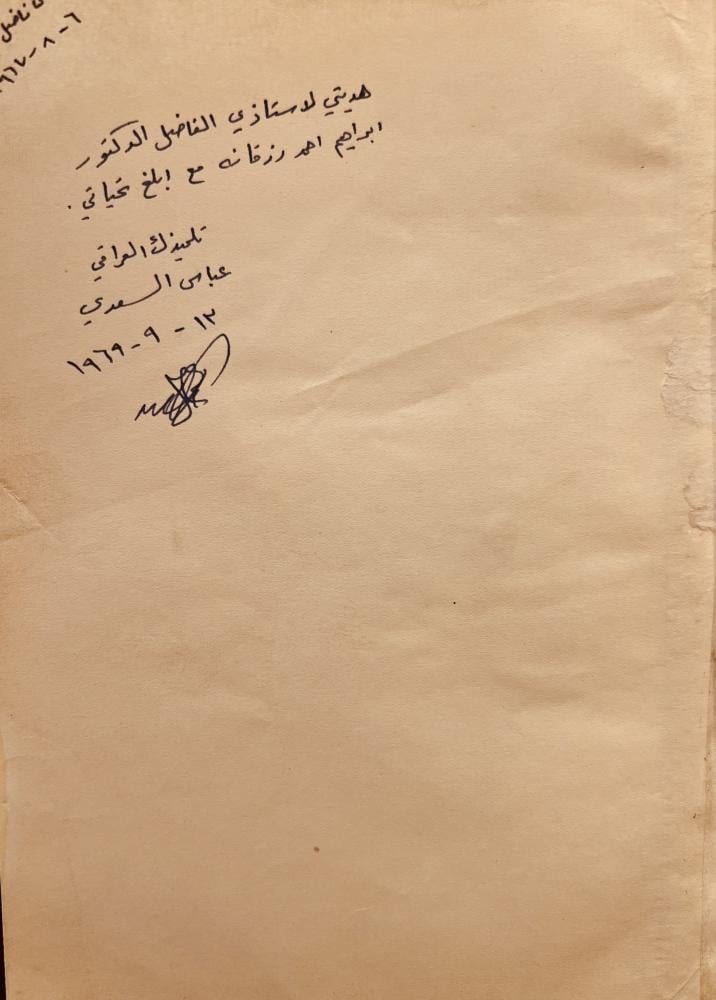 فاضل
٦ - ٨ - ١٩٦٧
هديتي لاستاذي الفاضل الدكتور
ابراهيم احمد رزقانه مع ابلغ تحياتي .
تلميذك العراقي
عباس السعدي
١٣ - ٩ - ١٩٦٩